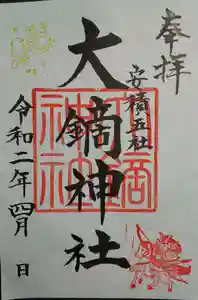 奉拝
安積五社
大鏑神社
令和二年四月 日